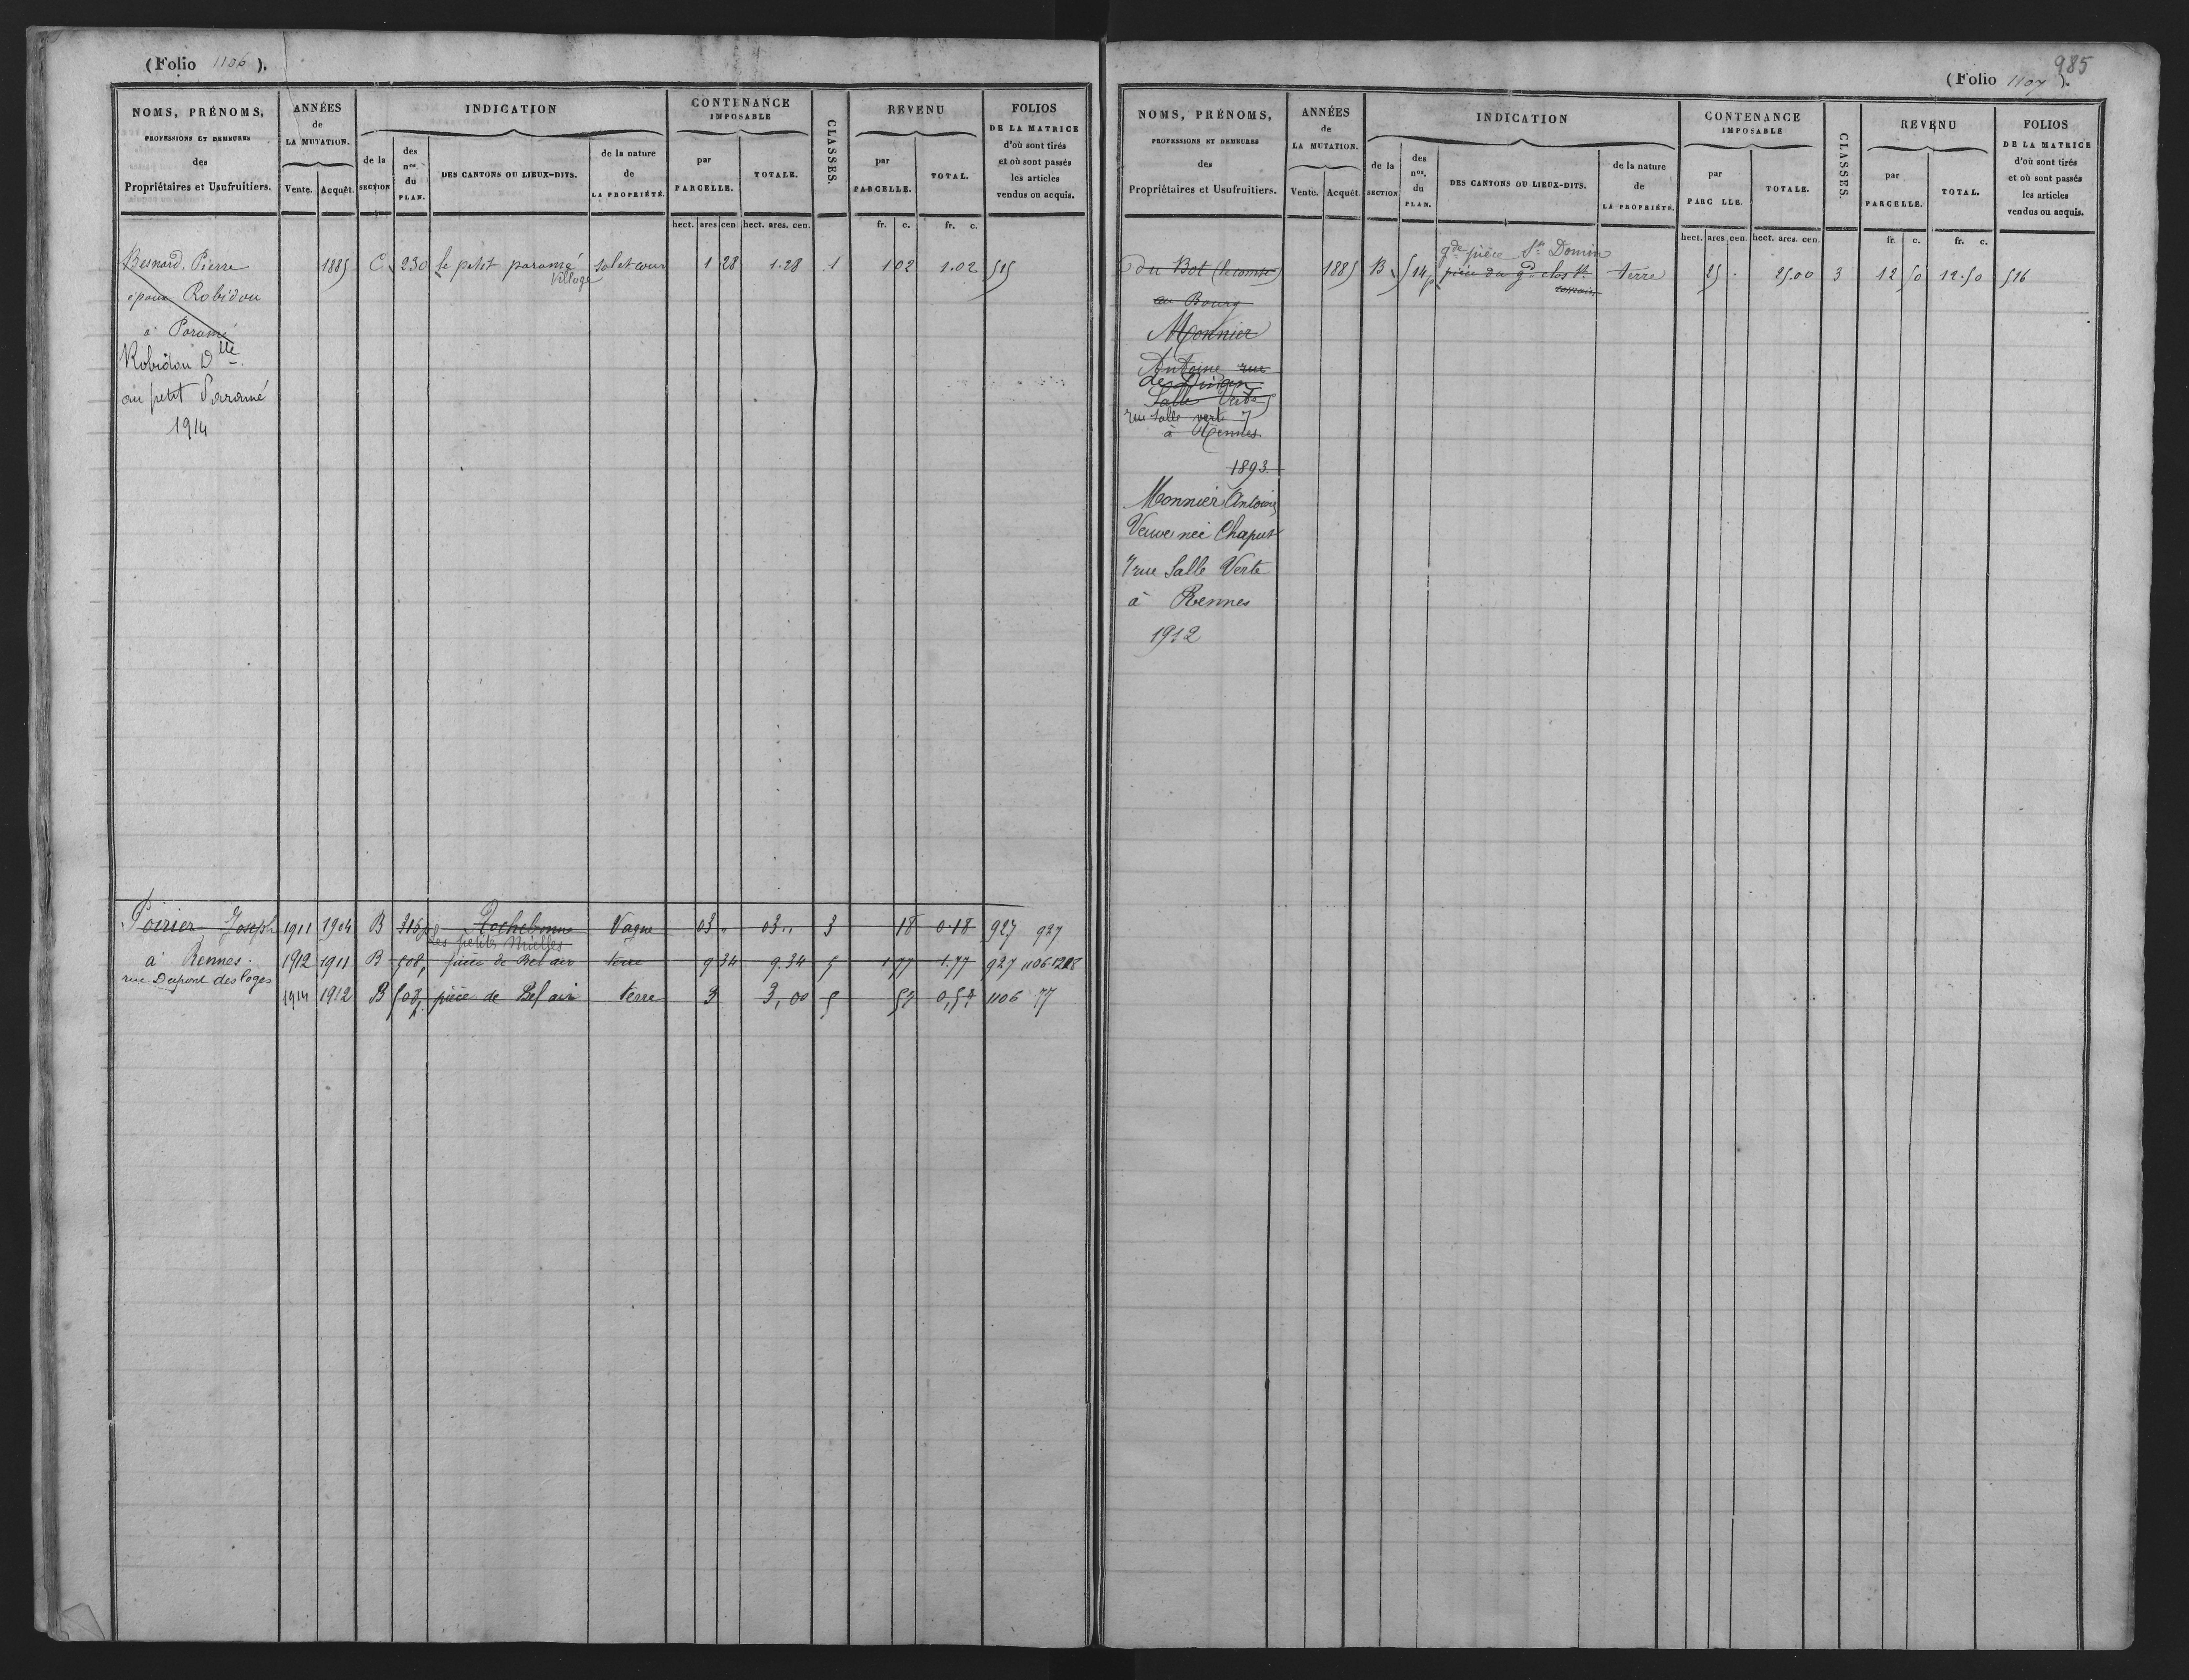 (Folio 1106).
NOMS, PRÉNOMS,
PROFESSIONS ET DEMEURES
des
Propriétaires et Usufruitiers.
ANNÉES
de
LA MUTATION.
Vente. Acquêt.
INDICATION
de la
SECTION
des
nos.
du
PLAN.
DES CANTONS OU LIEUX-DITS.
de la nature
de
LA PROPRIÉTÉ.
CONTENANCE
IMPOSABLE
par
PARCELLE.
TOTALE.
CLASSES.
REVENU
par
PARCELLE.
TOTAL.
FOLIOS
DE LA MATRICE
d'où sont tirés
et où sont passés
les articles
vendus ou acquis.
hect. ares cen. hect. ares. cen. fr. c. fr. c.
Besnard, Pierre 1885 C 230 le petit paramé sol et cour 1 28 1.28 1 1 02 1.02 515
village
époux Robidou
à Paramé
Robidou Dlle
au petit Paramé
1914
Poirier Joseph 1911 1904 B 316p Rochebonne Vague 03 " 03 " 3 18 0.18 927 927
Les petits Mielles
à Rennes. 1912 1911 B 508p pièce de Bel air terre 9 34 9.34 5 1 77 1.77 927 1106
rue Dupont des loges
1914 1912 B 508p pièce de Bel air terre 3 3,00 5 57 0,57 1106 77
985
(Folio 1107).
NOMS, PRÉNOMS,
PROFESSIONS ET DEMEURES
des
Propriétaires et Usufruitiers.
ANNÉES
de
LA MUTATION.
Vente. Acquêt.
INDICATION
de la
SECTION
des
nos.
du
PLAN.
DES CANTONS OU LIEUX-DITS.
de la nature
de
LA PROPRIÉTÉ.
CONTENANCE
IMPOSABLE
par
PARC LLE.
TOTALE.
CLASSES.
REVENU
par
PARCELLE.
TOTAL.
FOLIOS
DE LA MATRICE
d'où sont tirés
et où sont passés
les articles
vendus ou acquis.
hect. ares cen. hect. ares. cen. fr. c. fr. c.
gde pièce St Domin
du Bot (le comte) 1885 B 514p pièce du gd clos St terre 25 . 25.00 3 12 50 12.50 516
au Bourg
Monnier
Antoine rue
de Dinan
Salle Verte 5
rue Salle verte 7
à Rennes
1893
Monnier Antoine
Veuve née Chaput
7 rue Salle Verte
à Rennes
1912